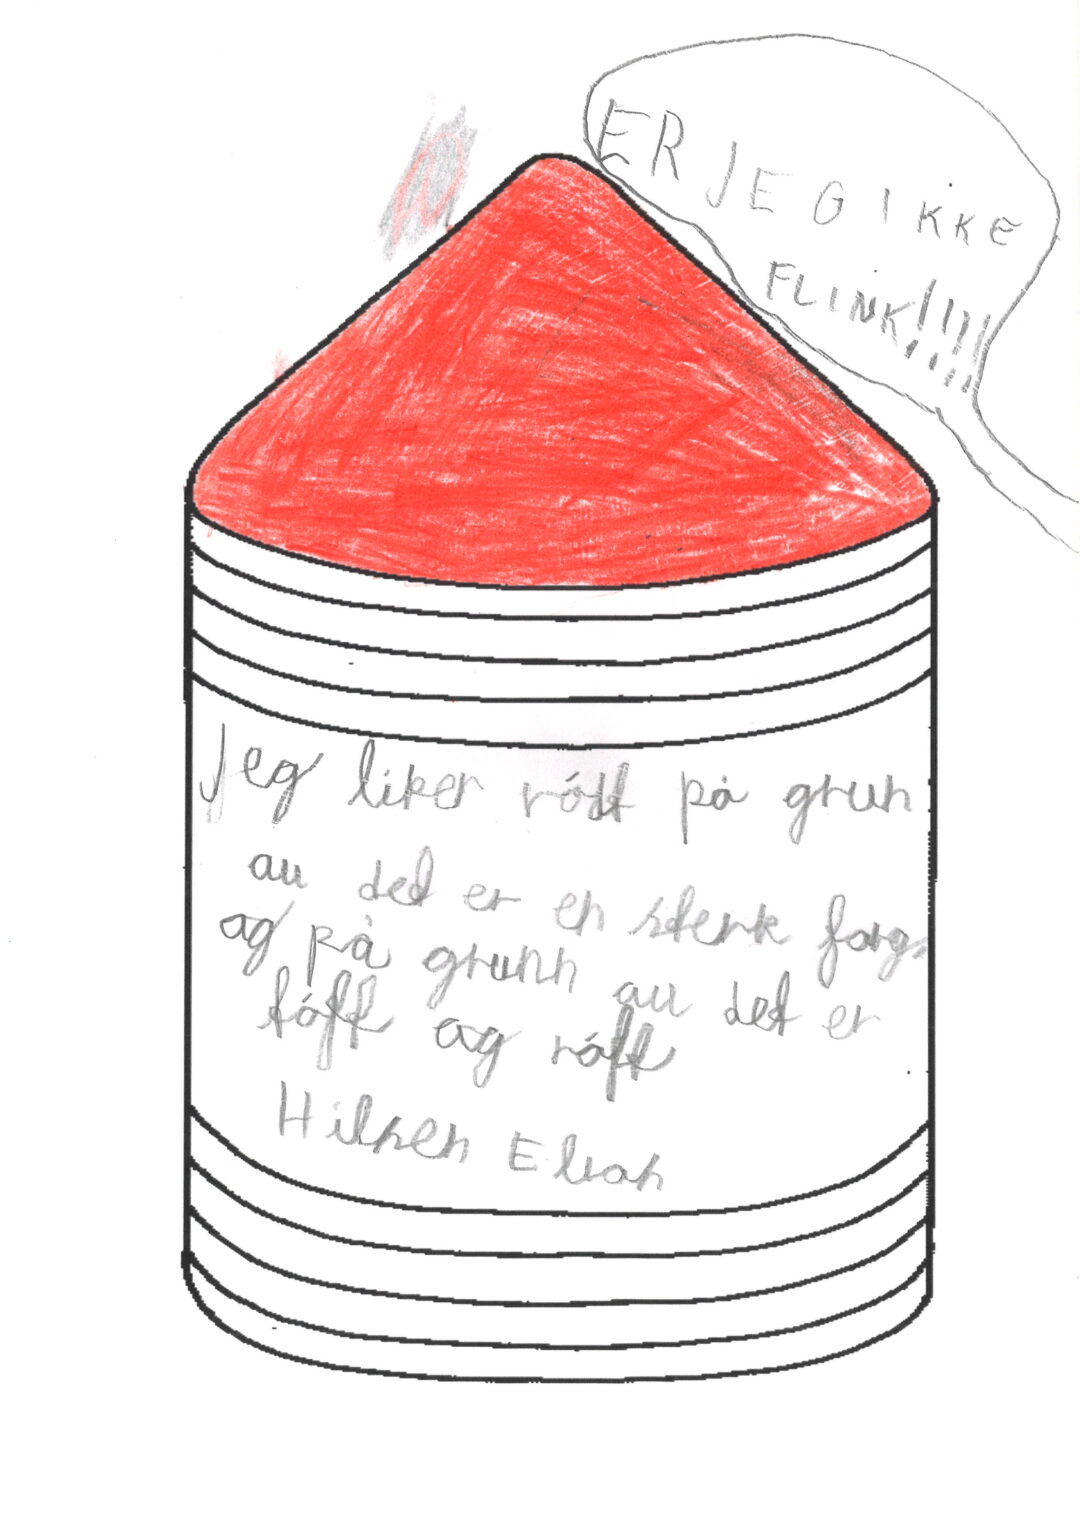 ER JEG IKKE
FLINK!!!!
Jeg liker rótt på grun
av det er en sterk farge
og på grunn av det er
tóft og rótt
Hilsen Eliah